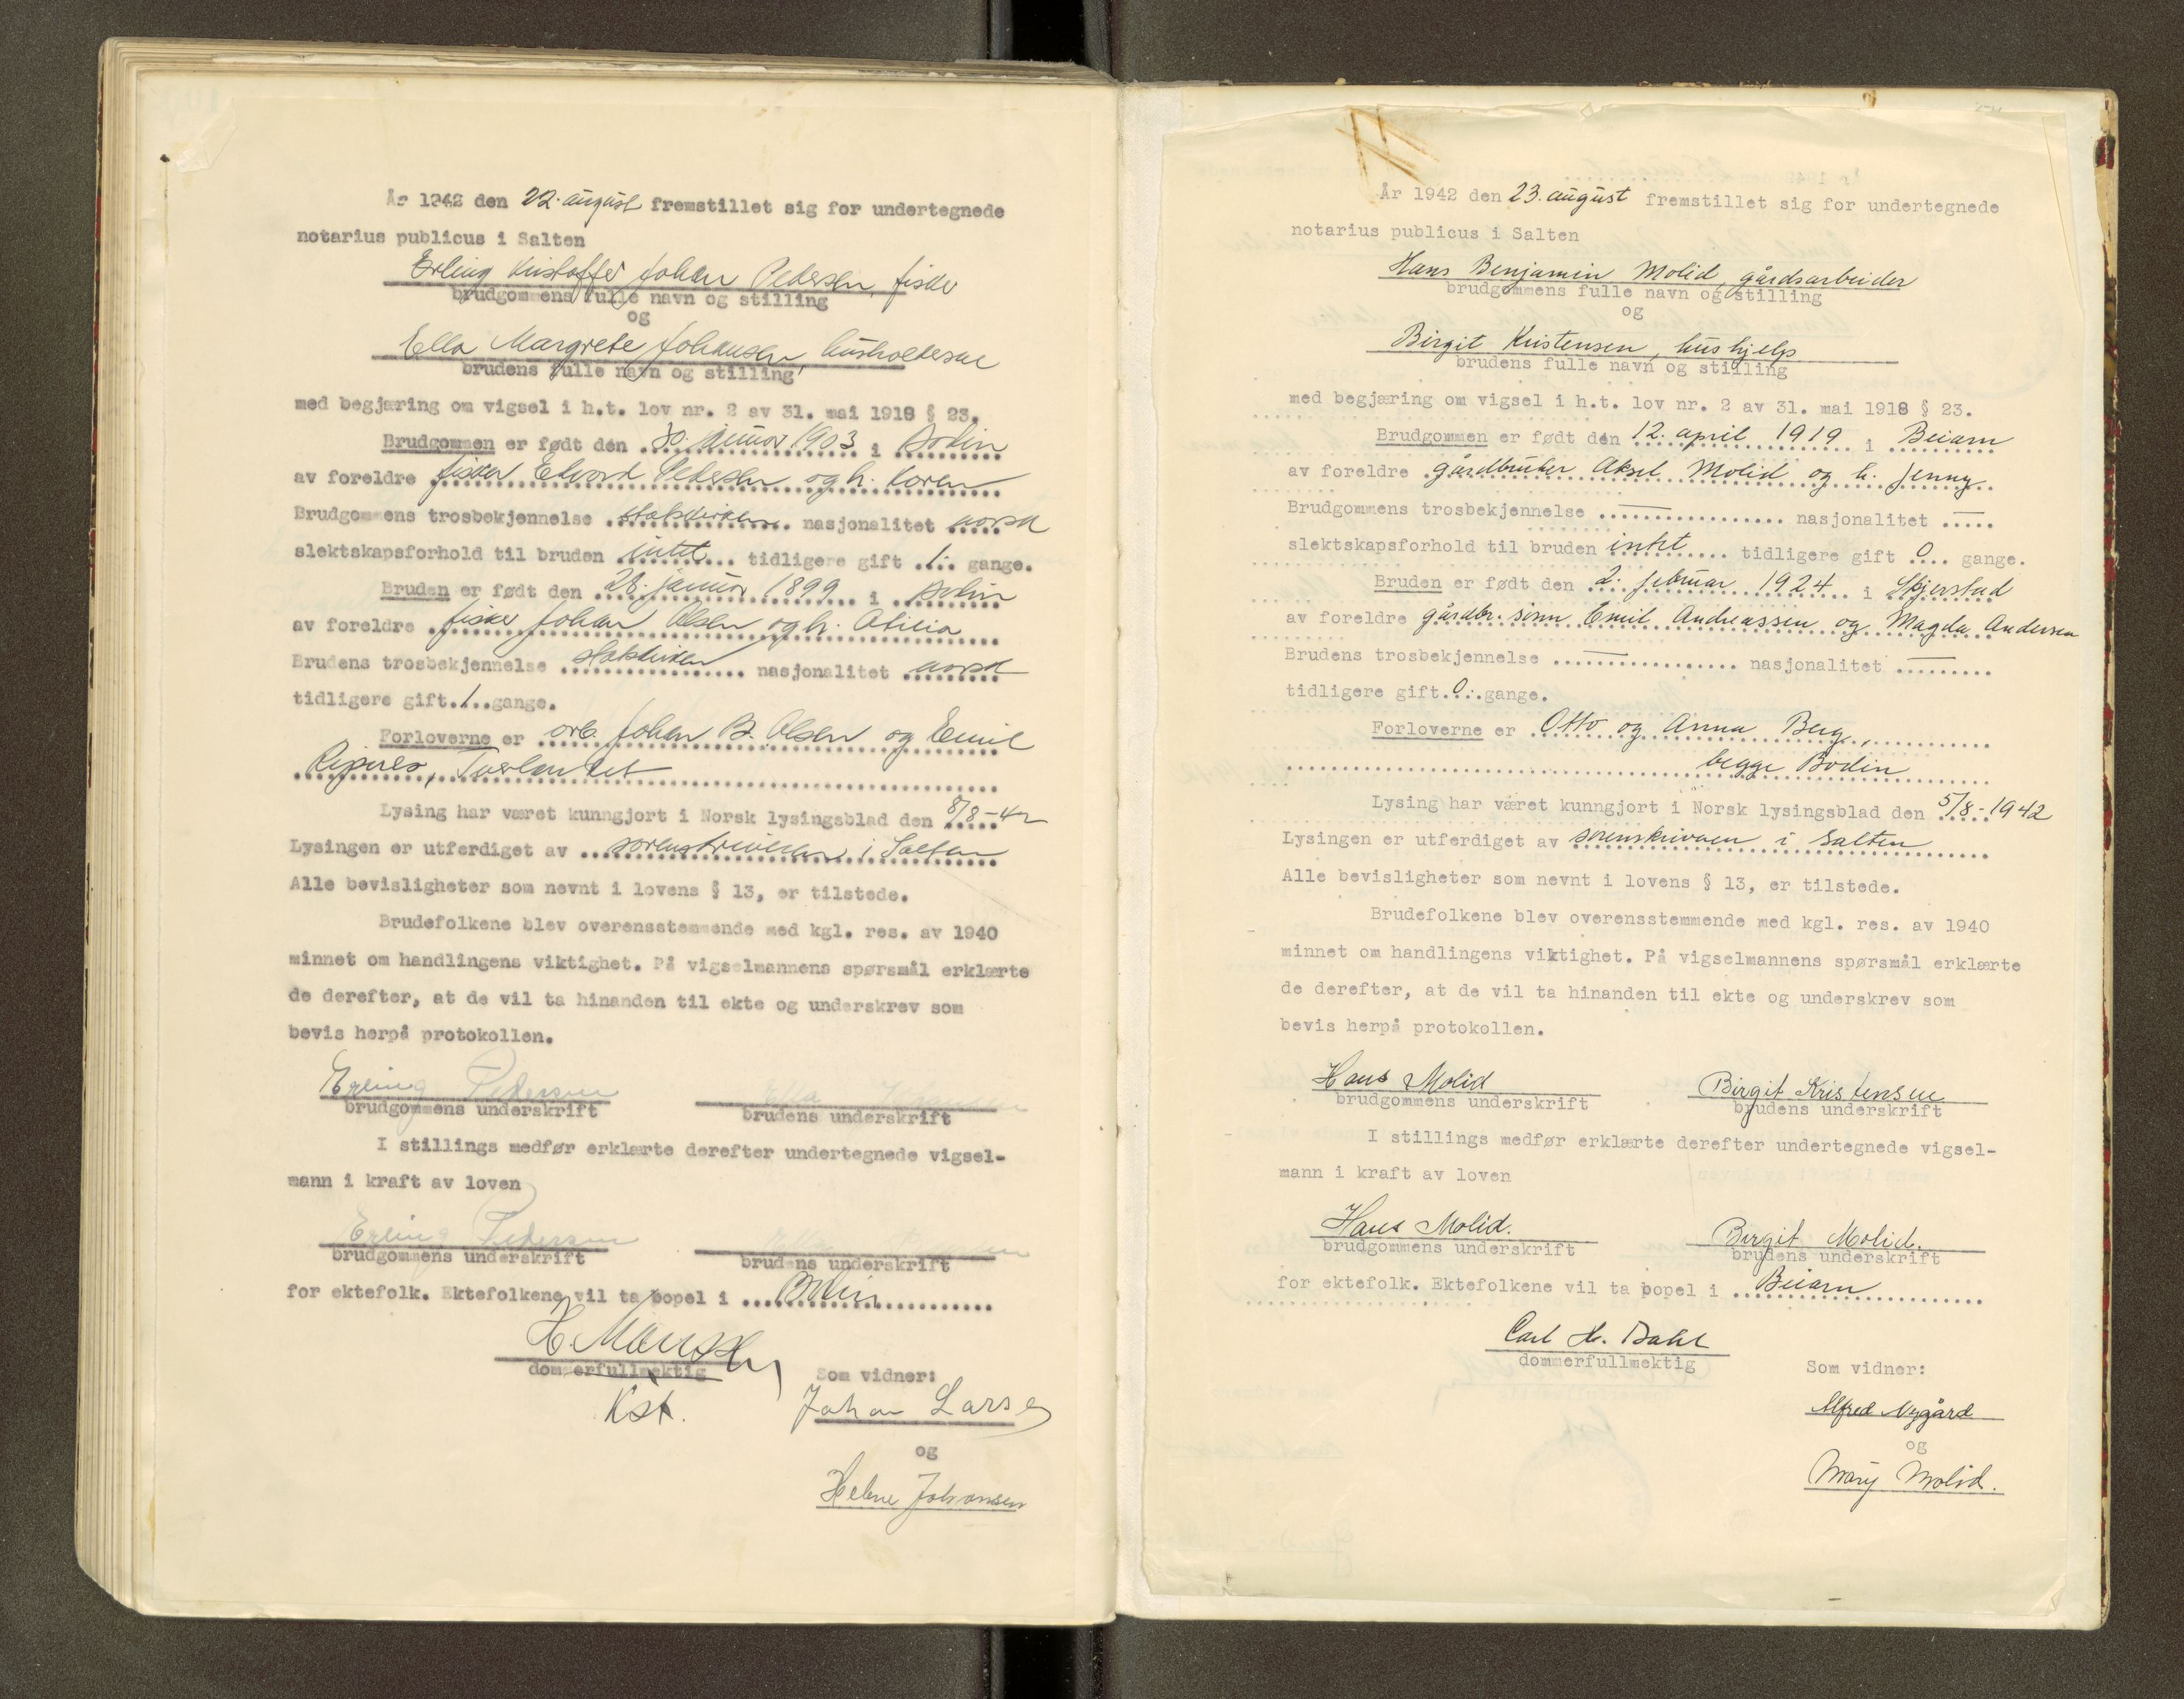 År 1942 den 22. august fremstillet sig for undertegnede
notarius publicus i Salten
Erling Kristoffer Johan Pedersen, fisker
brudgommens fulle navn og stilling
og
Ella Margrete Johansen, husholderske
brudens fulle navn og stilling
med begjæring om vigsel i h.t. lov nr. 2 av 31. mai 1918 § 23.
Brudgommen er født den januar 1903 i Bodin
av foreldre fisker Edvard Pedersen og h. Karen
Brudgommens trosbekjennelse statskirken nasjonalitet norsk
slektskapsforhold til bruden intet tidligere gift .1.. gange.
Bruden er født den 28. januar 1899 i Bodin
av foreldre fisker Johan Olsen og h. Otilia
Brudens trosbekjennelse statskirken nasjonalitet norsk
tidligere gift.1..gange.
Forloverne er arb. Johan B. Olsen og Emil
Lysing har været kunngjort i Norsk lysingsblad den 8/8-42
Lysingen er utferdiget av sorenskriveren i Salten
Alle bevisligheter som nevnt i lovens § 13, er tilstede.
Brudefolkene blev overensstemmende med kgl. res. av 1940
minnet om handlingens viktighet. På vigselmannens spørsmål erklærte
de derefter, at de vil ta hinanden til ekte og underskrev som
bevis herpå protokollen.
Erling Pedersen
brudgommens underskrift brudens underskrift
I stillings medfør erklærte derefter undertegnede vigsel-
mann i kraft av loven
Erling Pedersen
brudgommens underskrift brudens underskrift
for ektefolk. Ektefolkene vil ta bopel i Bodin
dommerfullmektig
Kst.
Som vidner:
Johan Larsen
og
Helene Johansen
År 1942 den 23. august fremstillet sig for undertegnede
notarius publicus i Salten
Hans Benjamin Molid, gårdsarbeider
brudgommens fulle navn og stilling
og
Birgit Kristensen, hushjelp
brudens fulle navn og stilling
med begjæring om vigsel i h.t. lov nr. 2 av 31. mai 1918 § 23.
Brudgommen er født den 12. april 1919 i Beiarn
av foreldre gårdbruker Aksel Molid og h. Jenny
Brudgommens trosbekjennelse — nasjonalitet —
slektskapsforhold til bruden intet tidligere gift .0... gange.
Bruden er født den 2. februar 1924 i Skjerstad
av foreldre gårdbr. sønn Emil Andreassen og Magda Andersen
Brudens trosbekjennelse — nasjonalitet —
tidligere gift.0..gange.
Forloverne er Otto og Anna Berg,
begge Bodin
Lysing har været kunngjort i Norsk lysingsblad den 5/8-1942
Lysingen er utferdiget av sorenskriveren i Salten
Alle bevisligheter som nevnt i lovens § 13, er tilstede.
Brudefolkene blev overensstemmende med kgl. res. av 1940
minnet om handlingens viktighet. På vigselmannens spørsmål erklærte
de derefter, at de vil ta hinanden til ekte og underskrev som
bevis herpå protokollen.
Hans Molid Birgit Kristensen
brudgommens underskrift brudens underskrift
I stillings medfør erklærte derefter undertegnede vigsel-
mann i kraft av loven
Hans Molid. Birgit Molid.
brudgommens underskrift brudens underskrift
for ektefolk. Ektefolkene vil ta bopel i Beiarn
Carl H. Dahl
dommerfullmektig
Som vidner:
Alfred Nygård
og
Mary Molid.